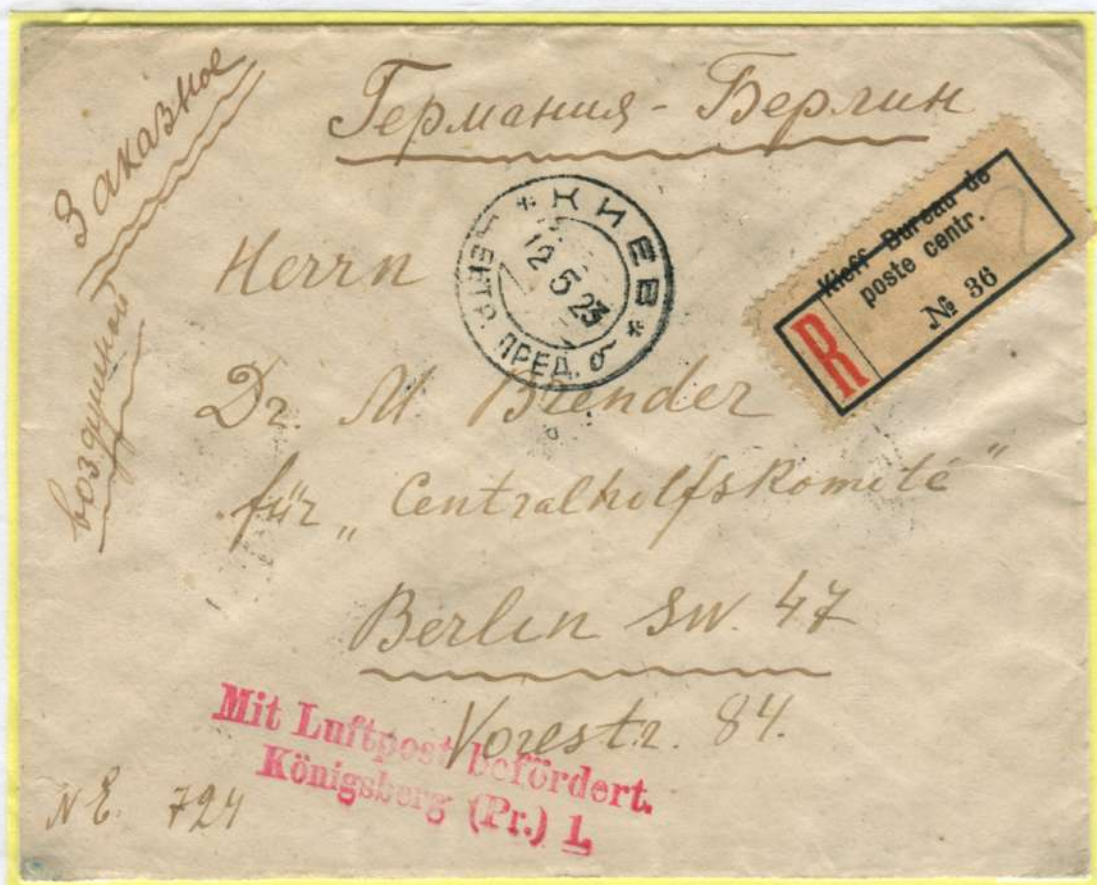 Заказное
воздушной
Германия - Берлин
* КИЕВ *
12 5 23
ЦЕНТР. ПРЕД. б
Kieff Bureau de
poste centr.
№ 36
R
Herrn
Dr. M. Brender
für „Centralhilfskomité"
Berlin SW. 47
Yorestr. 84.
Mit Luftpost befördert.
Königsberg (Pr.) 1.
724